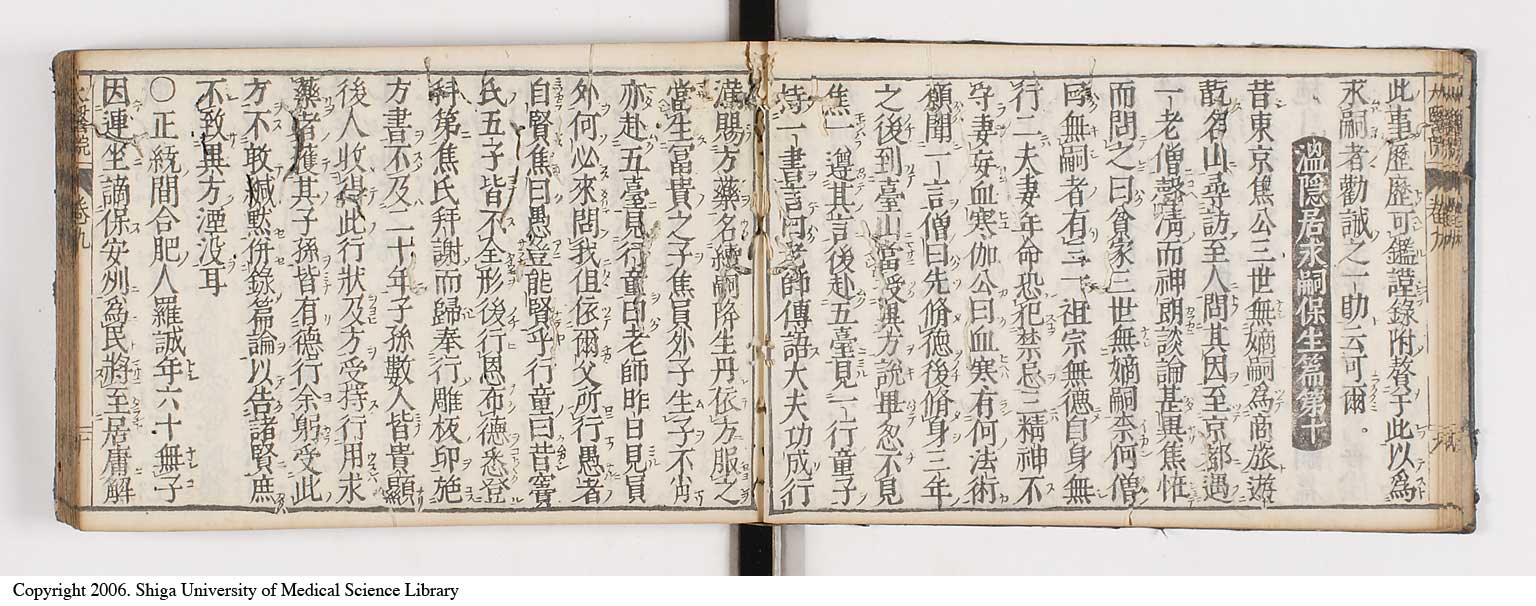 此事歷歷可鑑謹錄附贅于此以為
求嗣者勸誡之一助云可爾。
溫隱居求嗣保生篇第十
昔東京焦公三世無嫡嗣為商旅遊
翫名山尋訪至人問其因至京都遇
一老僧聲清而神朗談論甚異焦惟
而問之曰貧家三世無嫡嗣柰何僧
曰無嗣者有三一祖宗無德自身無
行二夫妻年命恐犯禁忌三精神不
守妻妾血寒伽公曰血寒有何法術
願聞一言僧曰先脩德後脩身三年
之後到臺山當受異方說畢忽不見
焦一遵其言後赴五臺見一行童子
持一書言問老師傳語大夫功成行
滿賜方藥名續嗣降生丹依方服之
當生富貴之子焦員外子生子不肖
亦赴五臺見行童曰老師昨日見員
外何必來問我但依爾父所行愚者
自賢焦曰愚豈能賢乎行童曰昔竇
氏五子皆不全形後行恩布德悉登
科第焦氏拜謝而歸奉行雕板印施
方書不及二十年子孫數人皆貴顯
後人收得此行狀及方受持行用求
藥者獲其子孫皆有德行余躬受此
方不敢緘默併錄篇論以告諸賢庶
不致異方湮没耳
○正統間合肥人羅誠年六十無子
因連坐謫保安州為民將至居庸解
Copyright 2006. Shiga University of Medical Science Library